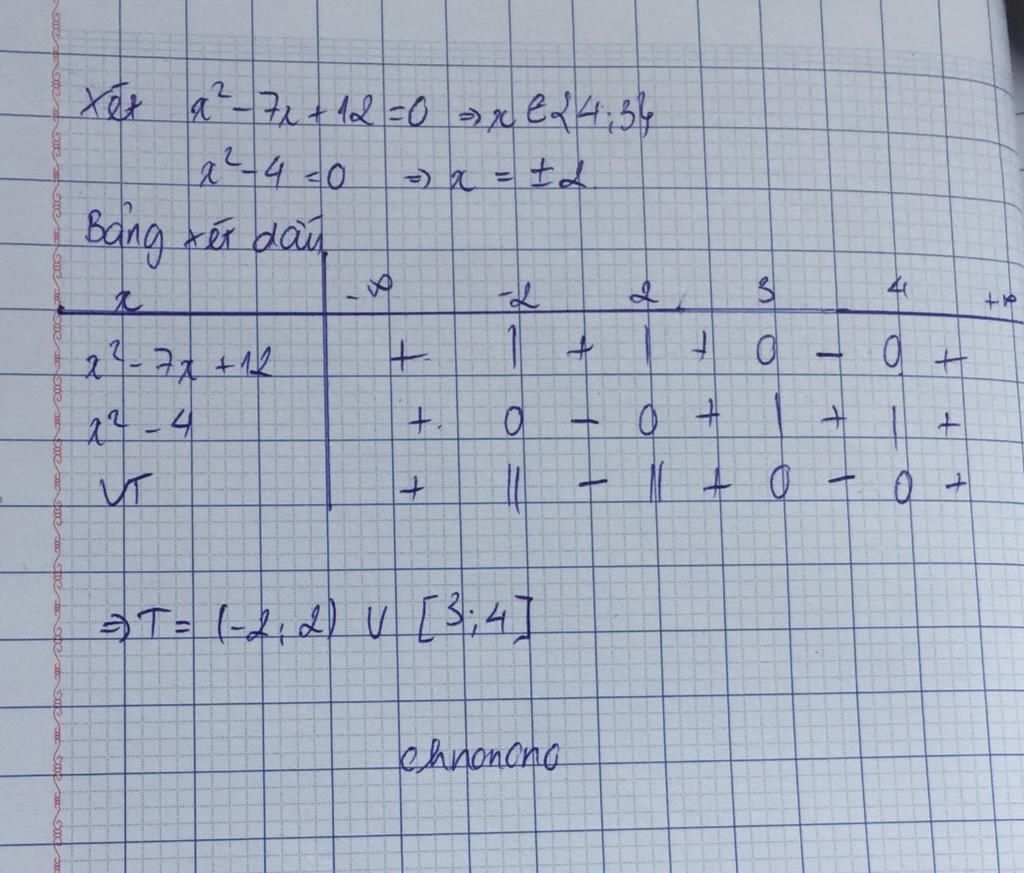 Xét x² - 7x + 12 = 0 ⇒ x ∈ {4;3}
x² - 4 = 0 ⇒ x = ±2
Bảng xét dấu
x -∞ -2 2 3 4 +∞
x² - 7x + 12 + | + | + 0 - 0 +
x² - 4 + 0 - 0 + | + | +
VT + || - || + 0 - 0 +
⇒ T = (-2; 2) ∪ [3; 4]
chnonono